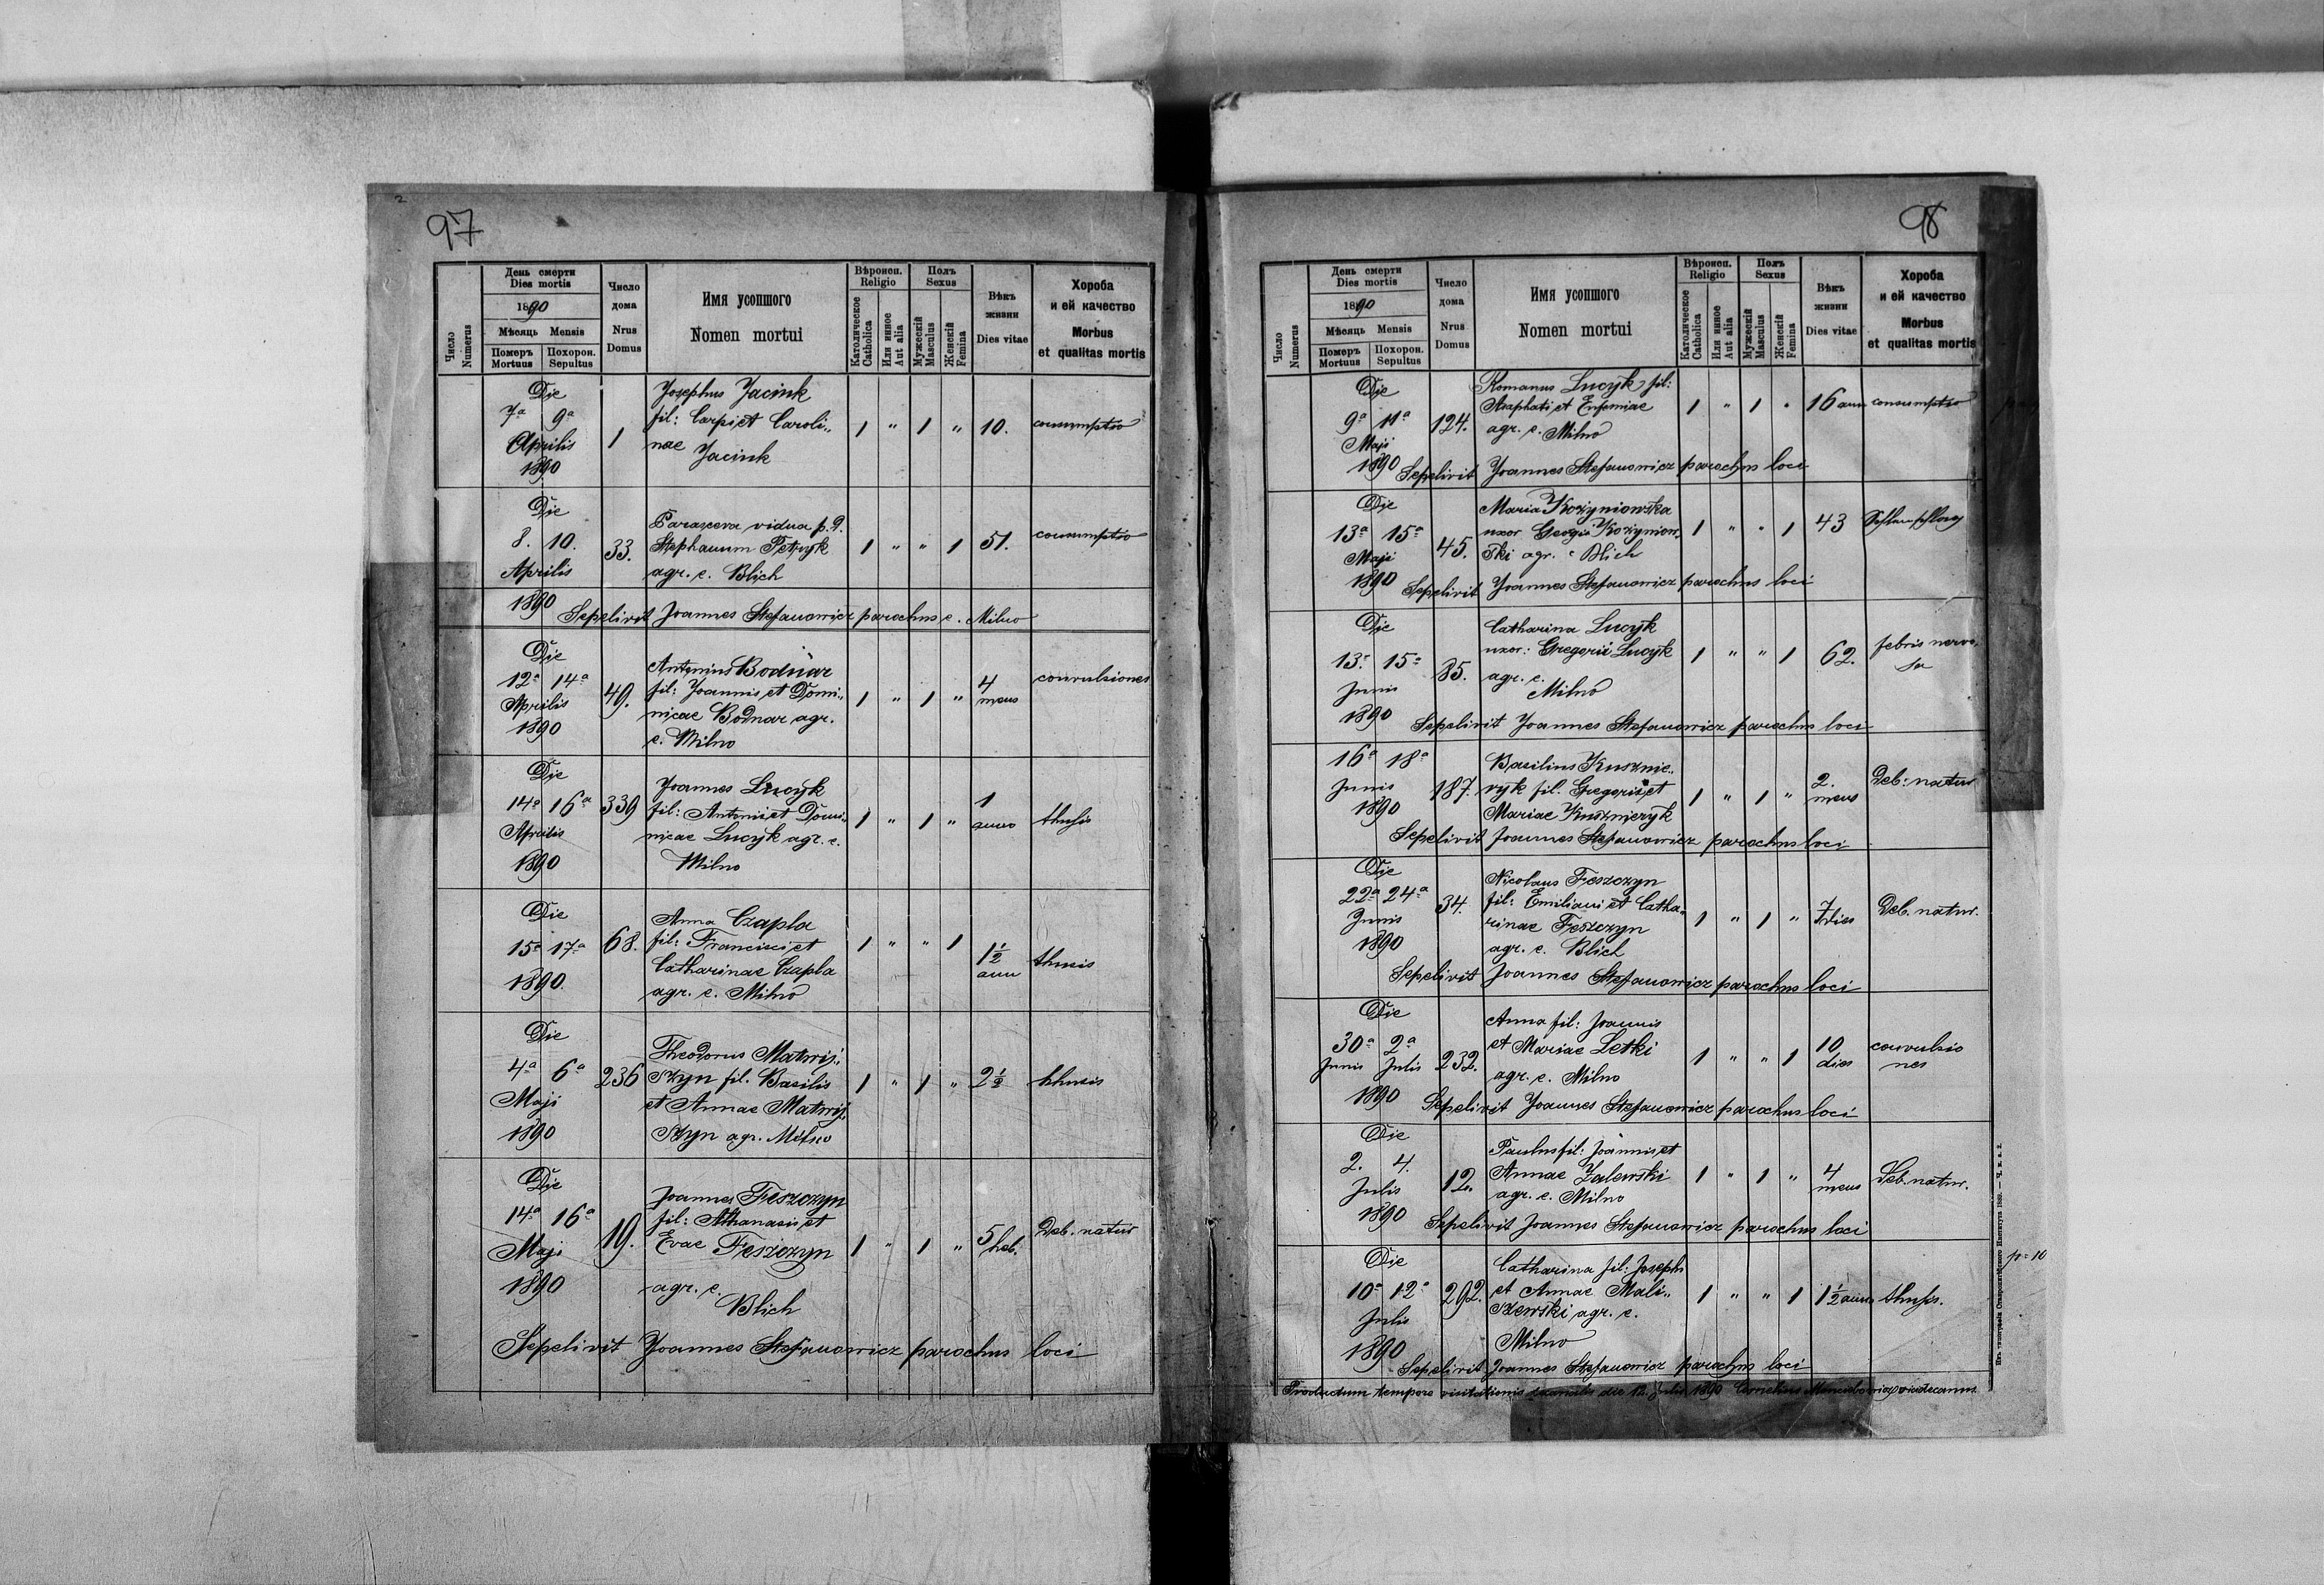 97
День смерти
Dies mortis
1890
Мѣсяць Mensis
Померъ Mortuus
Похорон. Sepultus
Число Numerus
Число дома
Nrus Domus
Имя усопшого
Nomen mortui
Вѣроисп.
Religio
Католическое Catholica
Или инное Aut alia
Полъ
Sexus
Мужескій Masculus
Женскій Femina
Вѣкъ жизни
Dies vitae
Хороба
и ей качество
Morbus
et qualitas mortis
Die
7a 9a
Aprilis
1890
1
Josephus Jacink
fil: Carpi et Caroli„
nae Jacink
1 „ 1 „ 10. consumptio
Die
8. 10.
Aprilis
33.
Paraxeva vidua p. d.
Stephanum Petryk
agr. e. Blich
1 „ „ 1 51. consumptio
1890 Sepelivit Joannes Stefanowicz parochus e. Milno
Die
12a 14a
Aprilis
1890
49.
Antonius Bodnar
fil: Joannis et Domi„
nicae Bodnar agr.
e. Milno
1 „ 1 „ 4 mens convulsiones
Die
14a 16a
Aprilis
1890
339
Joannes Lucyk
fil: Antonii et Domi„
nicae Lucyk agr. e.
Milno
1 „ 1 „ 1 anno thusis
Die
15a 17a
1890.
68.
Anna Czapla
fil: Francisci et
Catharinae Czapla
agr. e. Milno
1 „ „ 1 1½ ann thusis
Die
4a 6a
Maji
1890
236
Theodorus Matwij„
szyn fil. Basilii
et Annae Matwij„
szyn agr. Milno
1 „ 1 „ 2½ thusis
Die
14a 16a
Maji
1890
19.
Joannes Feszczyn
fil: Athanasii et
Evae Feszczyn
agr. e.
Blich
1 „ 1 „ 5 heb. Deb. natur
Sepelivit Joannes Stefanowicz parochus loci
98
День смерти
Dies mortis
1890
Мѣсяць Mensis
Померъ Mortuus
Похорон. Sepultus
Число Numerus
Число дома
Nrus Domus
Имя усопшого
Nomen mortui
Вѣроисп.
Religio
Католическое Catholica
Или инное Aut alia
Полъ
Sexus
Мужескій Masculus
Женскій Femina
Вѣкъ жизни
Dies vitae
Хороба
и ей качество
Morbus
et qualitas mortis
Die
9a 11a
Maji
124.
Romanus Lucyk fil:
Asaphati et Eufemiae
agr. e. Milno
1 „ 1 „ 16 ann consumptio
1890 Sepelivit Joannes Stefanowicz parochus loci
Die
13a 15a
Maji
45.
Maria Kozyniowska
uxor Georgii Kozyniow„
ski agr. e Blich
1 „ „ 1 43
1890 Sepelivit Joannes Stefanowicz parochus loci
Die
13a 15a
Junii
85.
Catharina Lucyk
uxor: Gregorii Lucyk
agr. e.
Milno
1 „ „ 1 62. febris nervo„
sa
1890 Sepelivit Joannes Stefanowicz parochus loci
16a 18a
Junii
1890
187.
Basilius Kusznie„
ryk fil. Gregorii et
Mariae Kusznieryk
1 „ 1 „ 2. mens Deb. natur
Sepelivit Joannes Stefanowicz parochus loci
Die
22a 24a
Junii
1890
34.
Nicolaus Feszczyn
fil: Emiliani et Catha„
rinae Feszczyn
agr. e. Blich
1 „ 1 „ 7 dies Deb. natur.
Sepelivit Joannes Stefanowicz parochus loci
Die
30a 2a
Junii Julii
232.
Anna fil: Joannis
et Mariae Letki
agr. e. Milno
1 „ „ 1 10 dies convulsio
nes
1890 Sepelivit Joannes Stefanowicz parochus loci
Die
2. 4.
Julii
12.
Paulus fil: Joannis et
Annae Zalewski
agr. e. Milno
1 „ 1 „ 4 mens Deb. natur.
1890 Sepelivit Joannes Stefanowicz parochus loci
Die
10a 12a
Julii
1890
292.
Catharina fil: Josephi
et Annae Mali„
szewski agr. e.
Milno
1 „ „ 1 1½ ann thusis.
Sepelivit Joannes Stefanowicz parochus loci
Productum tempore visitationis decanalis die 12 Julii 1890 Cornelius vicedecanus.
p= 10
Изъ типографіи Ставропигійского Института 1889. — Ч. в. а. 2.